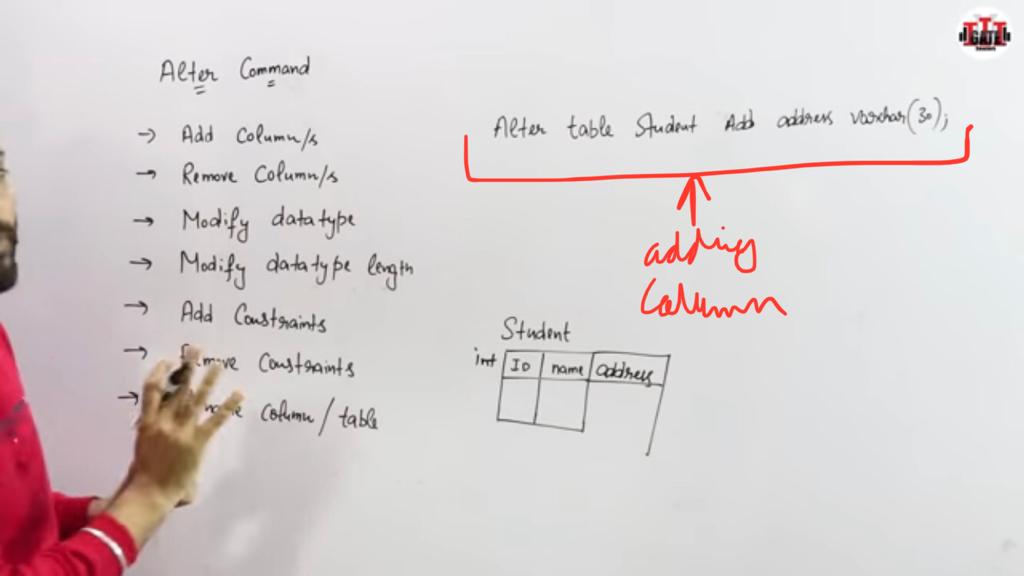 Alter Command
→ Add Column/s
→ Remove Column/s
→ Modify datatype
→ Modify datatype length
→ Add Constraints
→ Constraints
→ Column/table
Alter table Student Add address varchar(30);
adding
Column
Student
int ID name address
GATE